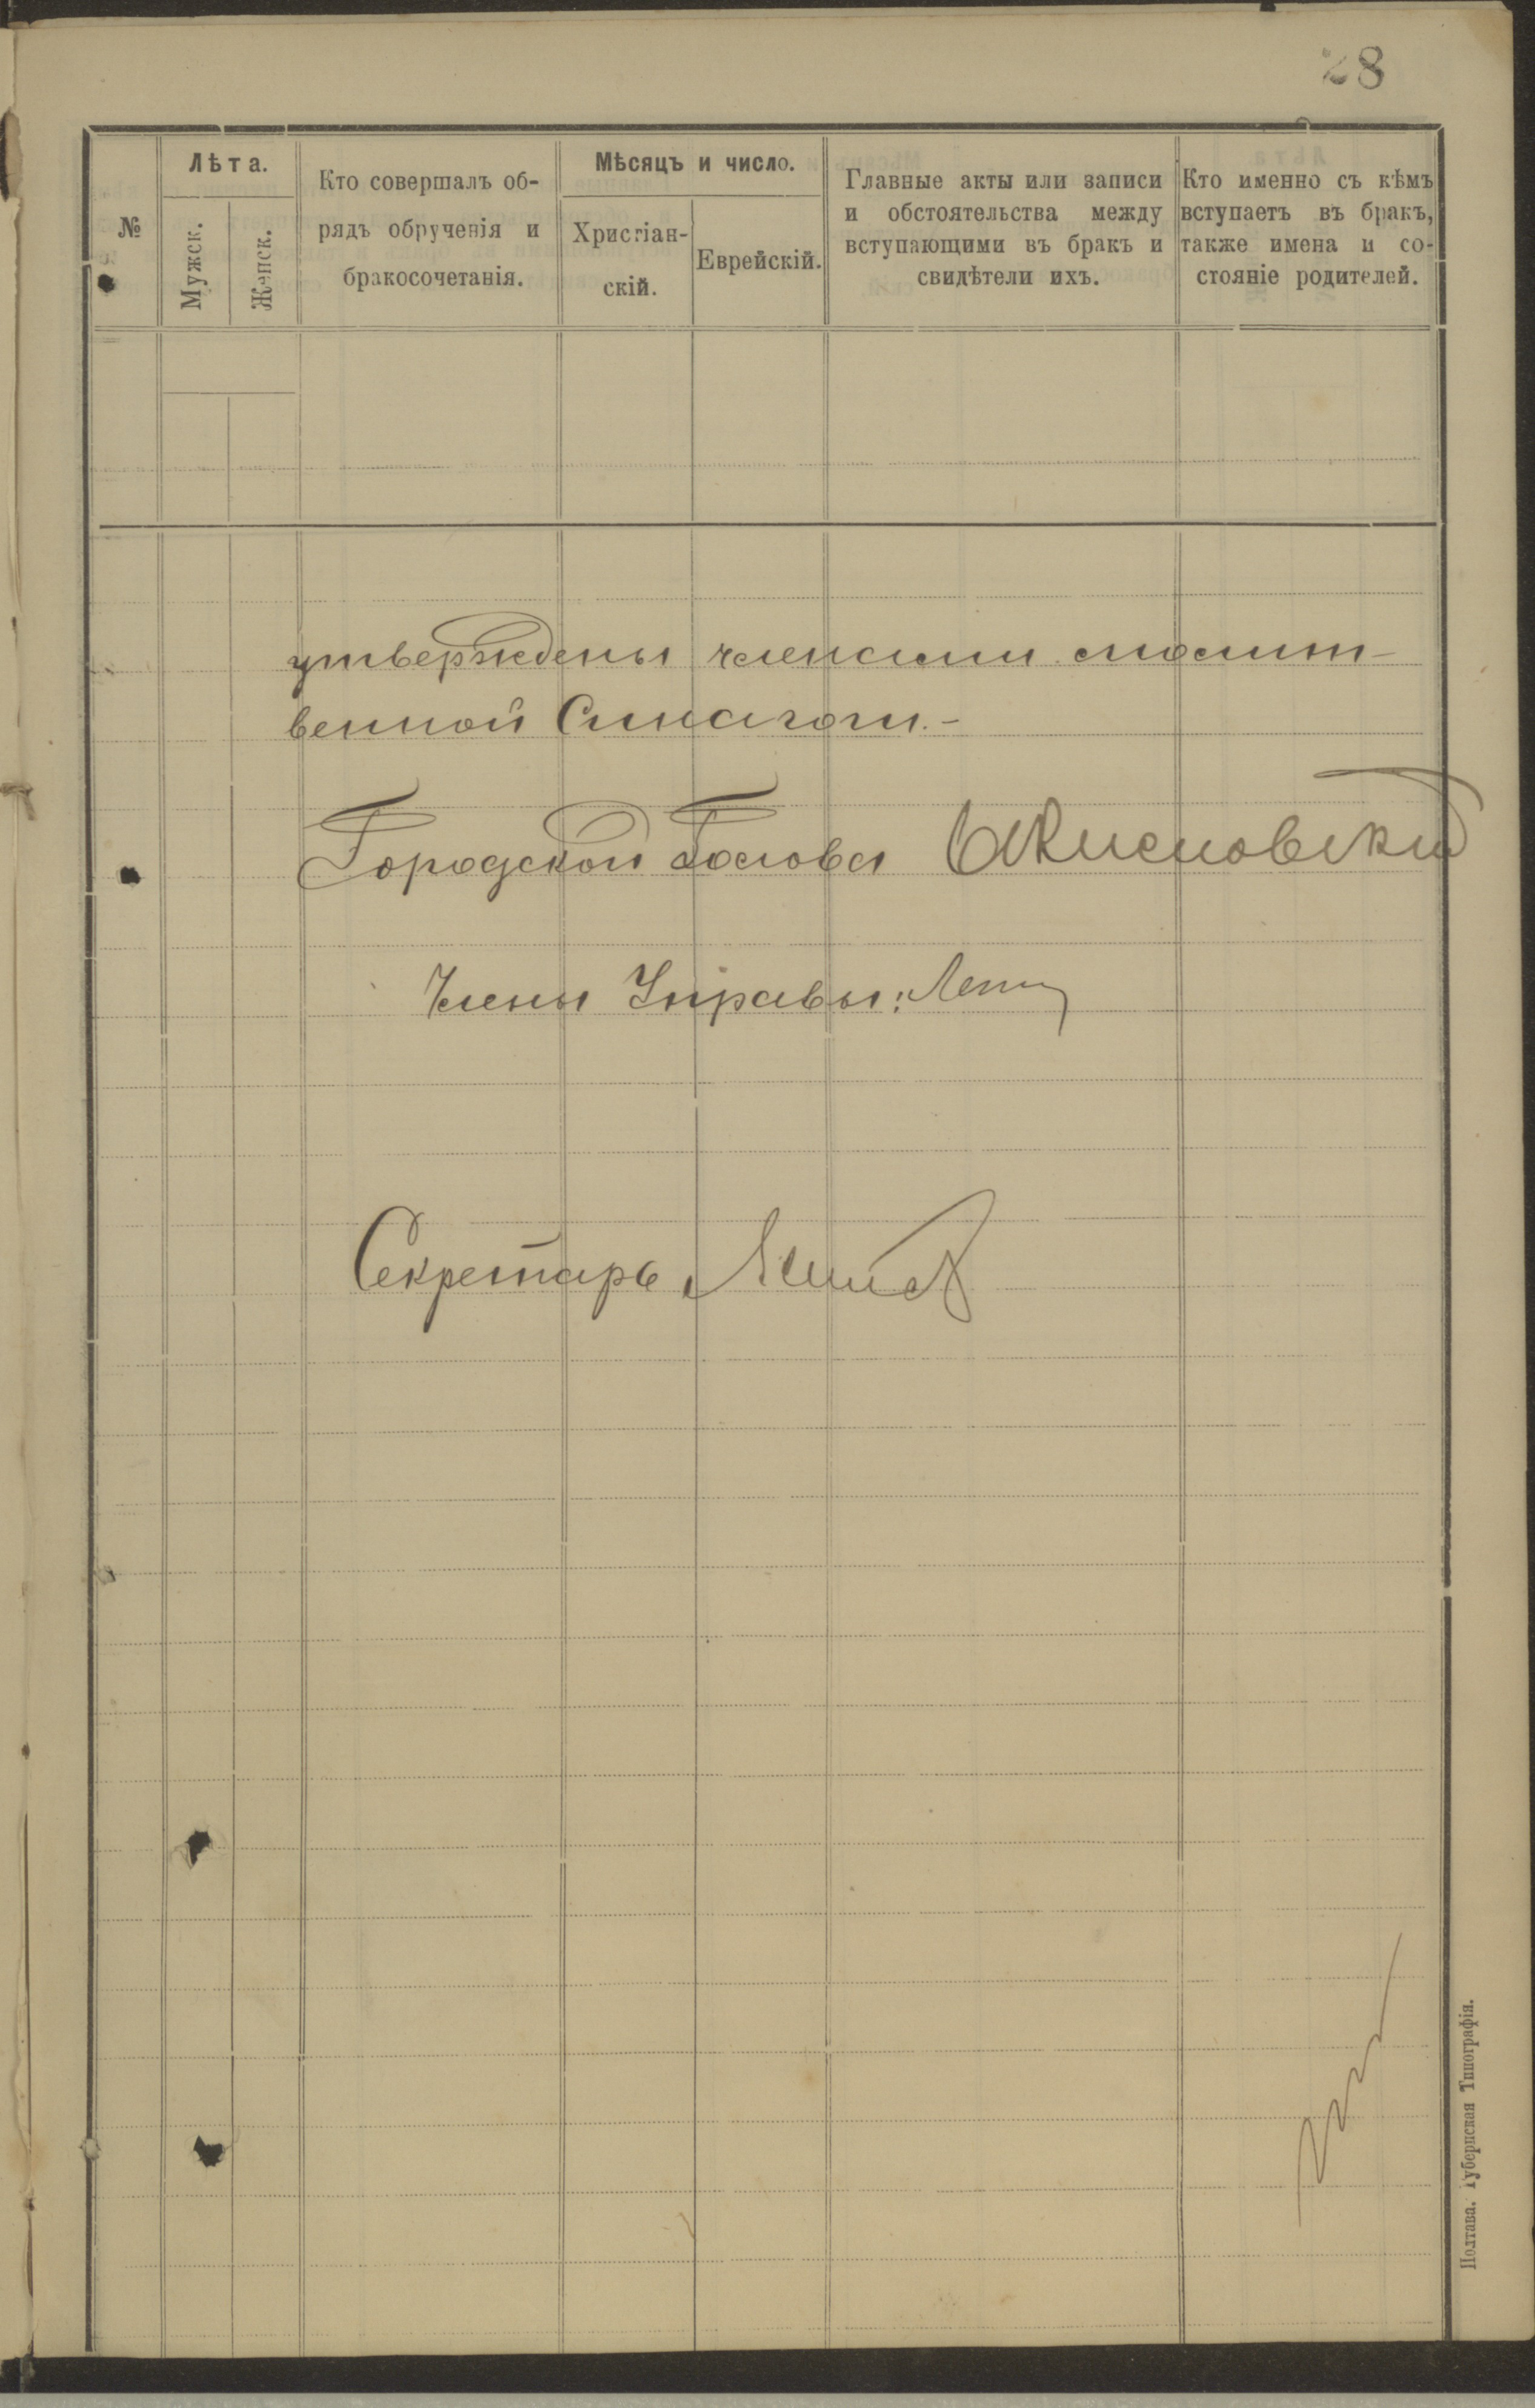 28
№
Лѣта.
Мужск.
Женск.
Кто совершалъ об-
рядъ обрученія и
бракосочетанія.
Мѣсяцъ и число.
Христіан-
скій.
Еврейскій.
Главные акты или записи
и обстоятельства между
вступающими въ бракъ и
свидѣтели ихъ.
Кто именно съ кѣмъ
вступаетъ въ бракъ,
также имена и со-
стояніе родителей.
утверждены членами молит-
венной Синагоги.-
Городской Голова
Члены Управы:
Секретарь
Полтава. Губернская Типографія.